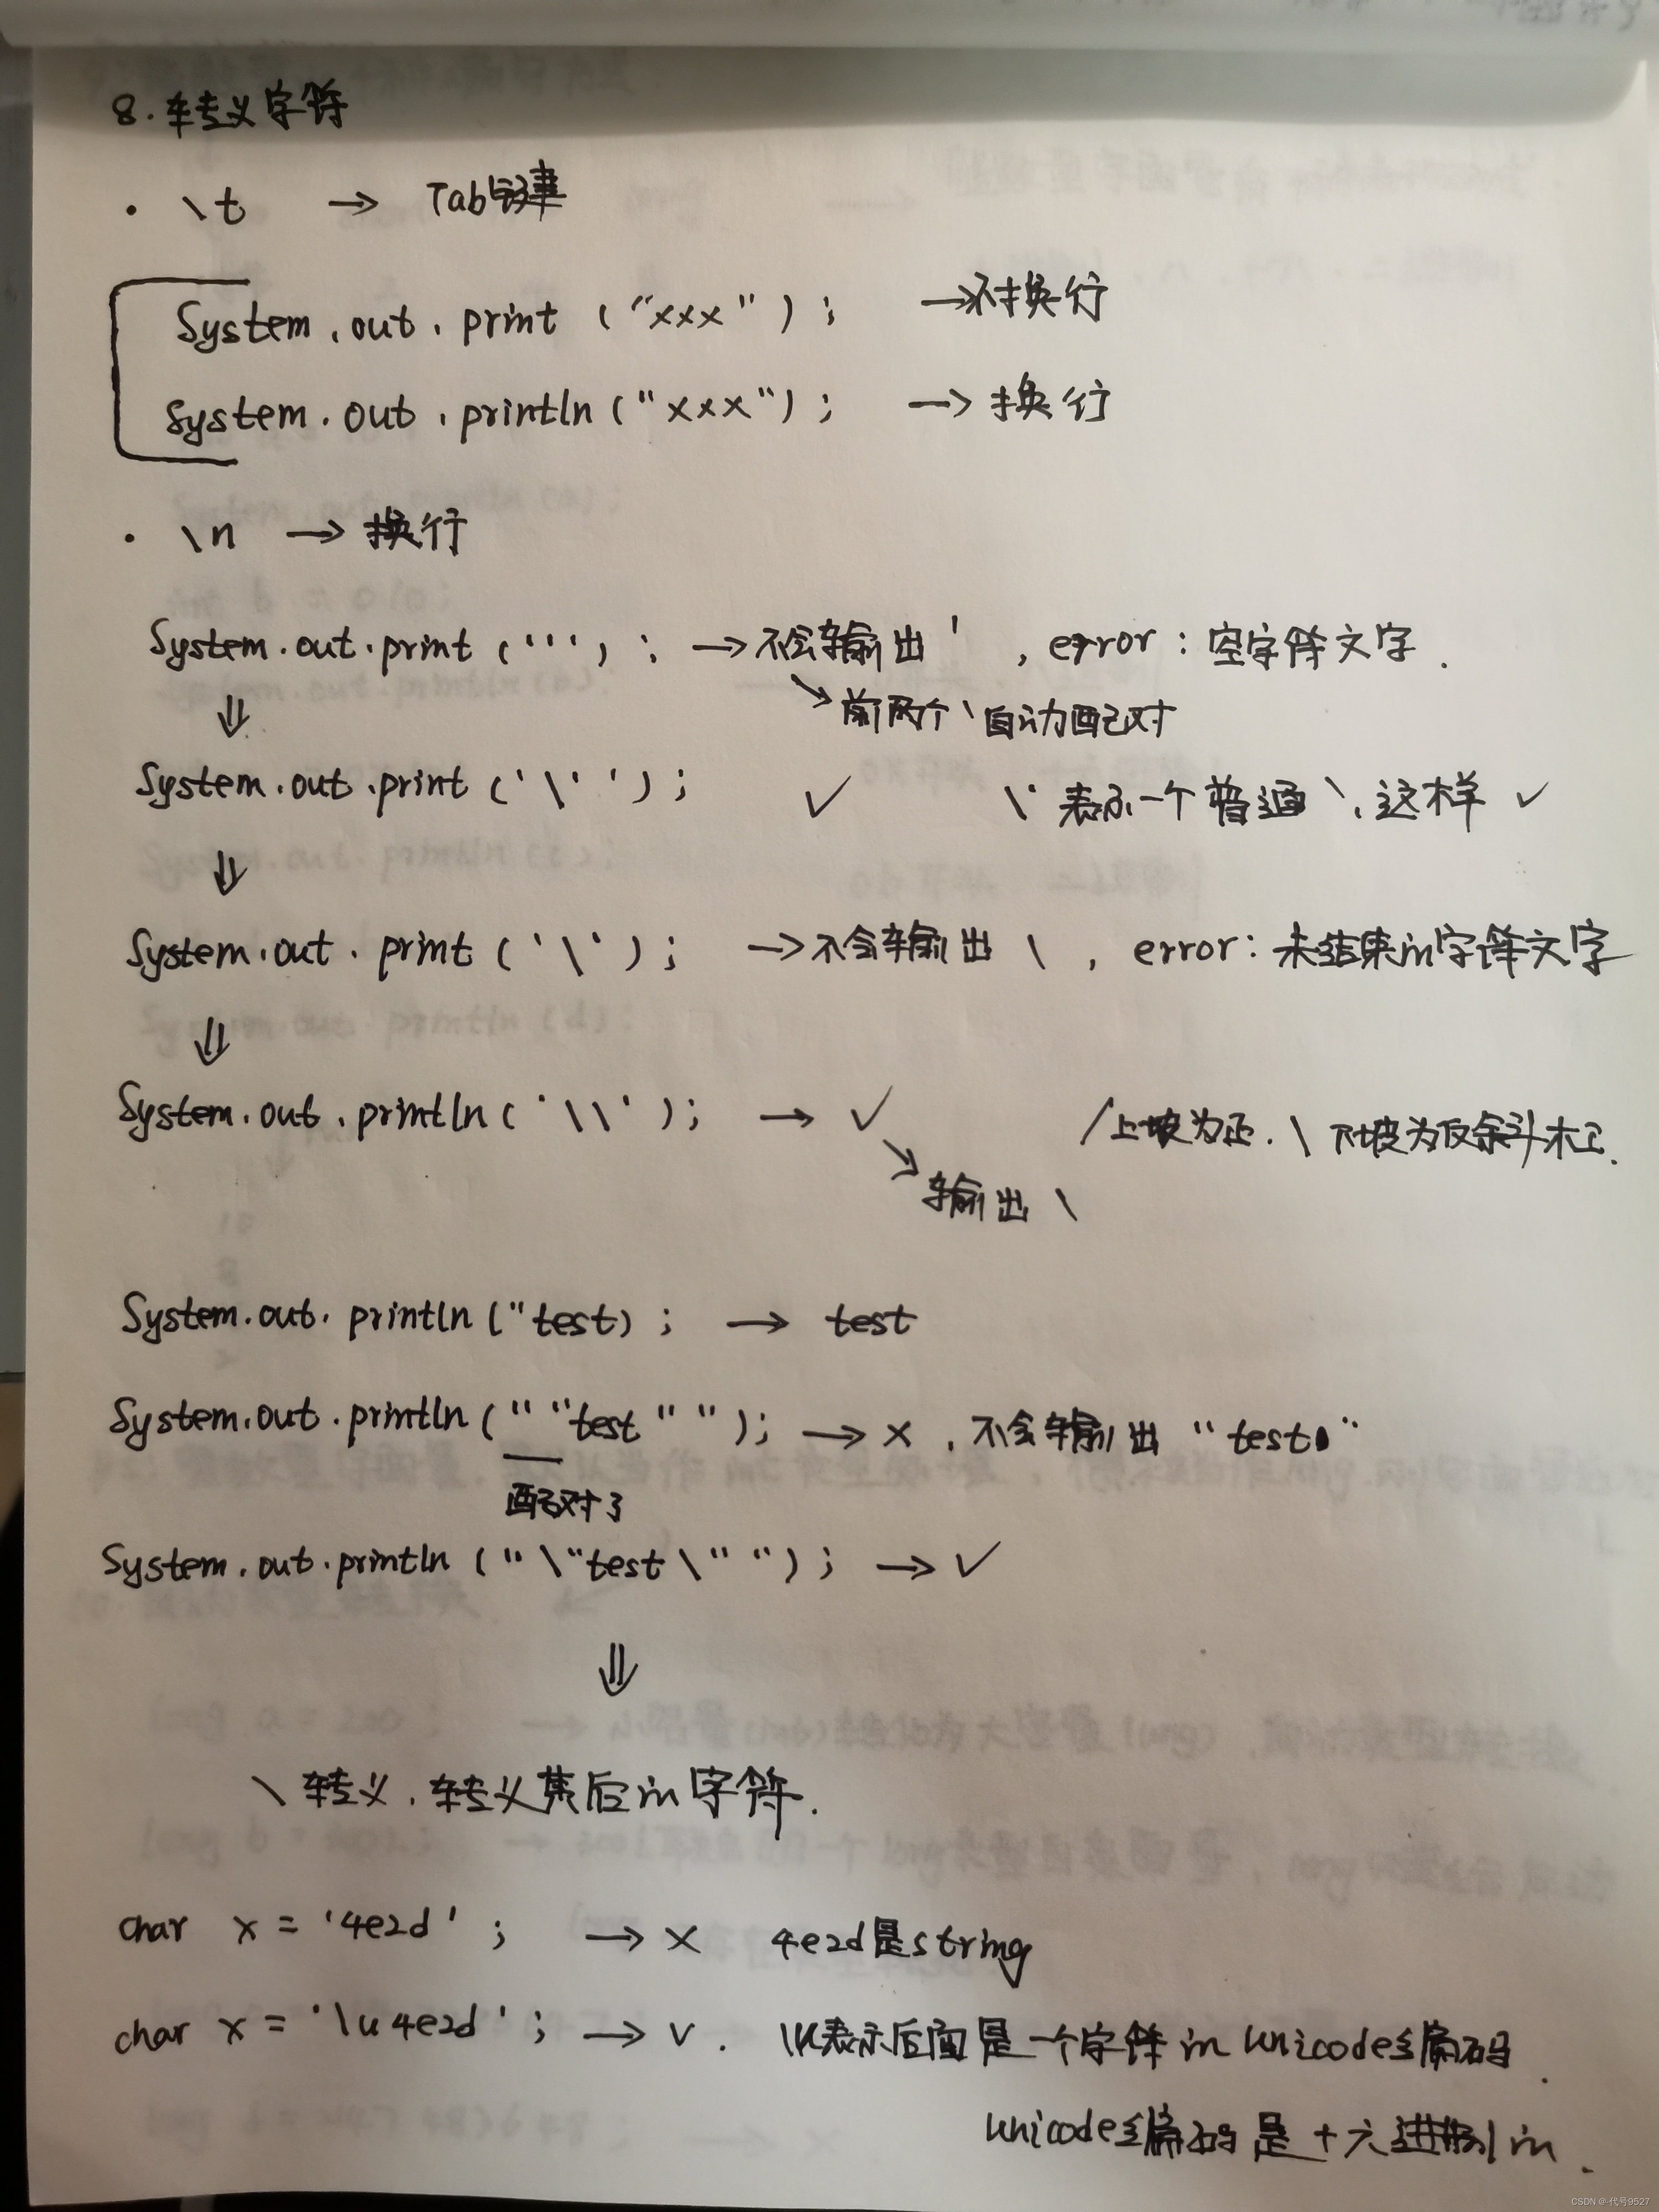 8. 转义字符
· \t → Tab键
System.out.print ("xxx") ; →不换行
System.out.println("xxx") ; → 换行
· \n → 换行
System.out.print (''') ; → 不会输出 ' , error : 空字符文字 .
↘ 前两个 ' 自动配对
⇓
System.out.print ('\'') ; ✓ \' 表示一个普通 ', 这样 ✓
⇓
System.out.print ('\') ; → 不会输出 \ , error : 未结束的字符文字
⇓
System.out.println('\\') ; → ✓ /上坡为正. \ 下坡为反斜杠.
↘ 输出 \
System.out.println("test) ; → test
System.out.println(" "test " ") ; → x , 不会输出 "test"
配对了
System.out.println (" \"test \" ") ; → ✓
⇓
\ 转义, 转义其后的字符.
char x = '4e2d' ; → x 4e2d是string
char x = '\u4e2d' ; → v . \u表示后面是一个字符的unicode编码.
unicode编码是十六进制的.
CSDN @·代号9527